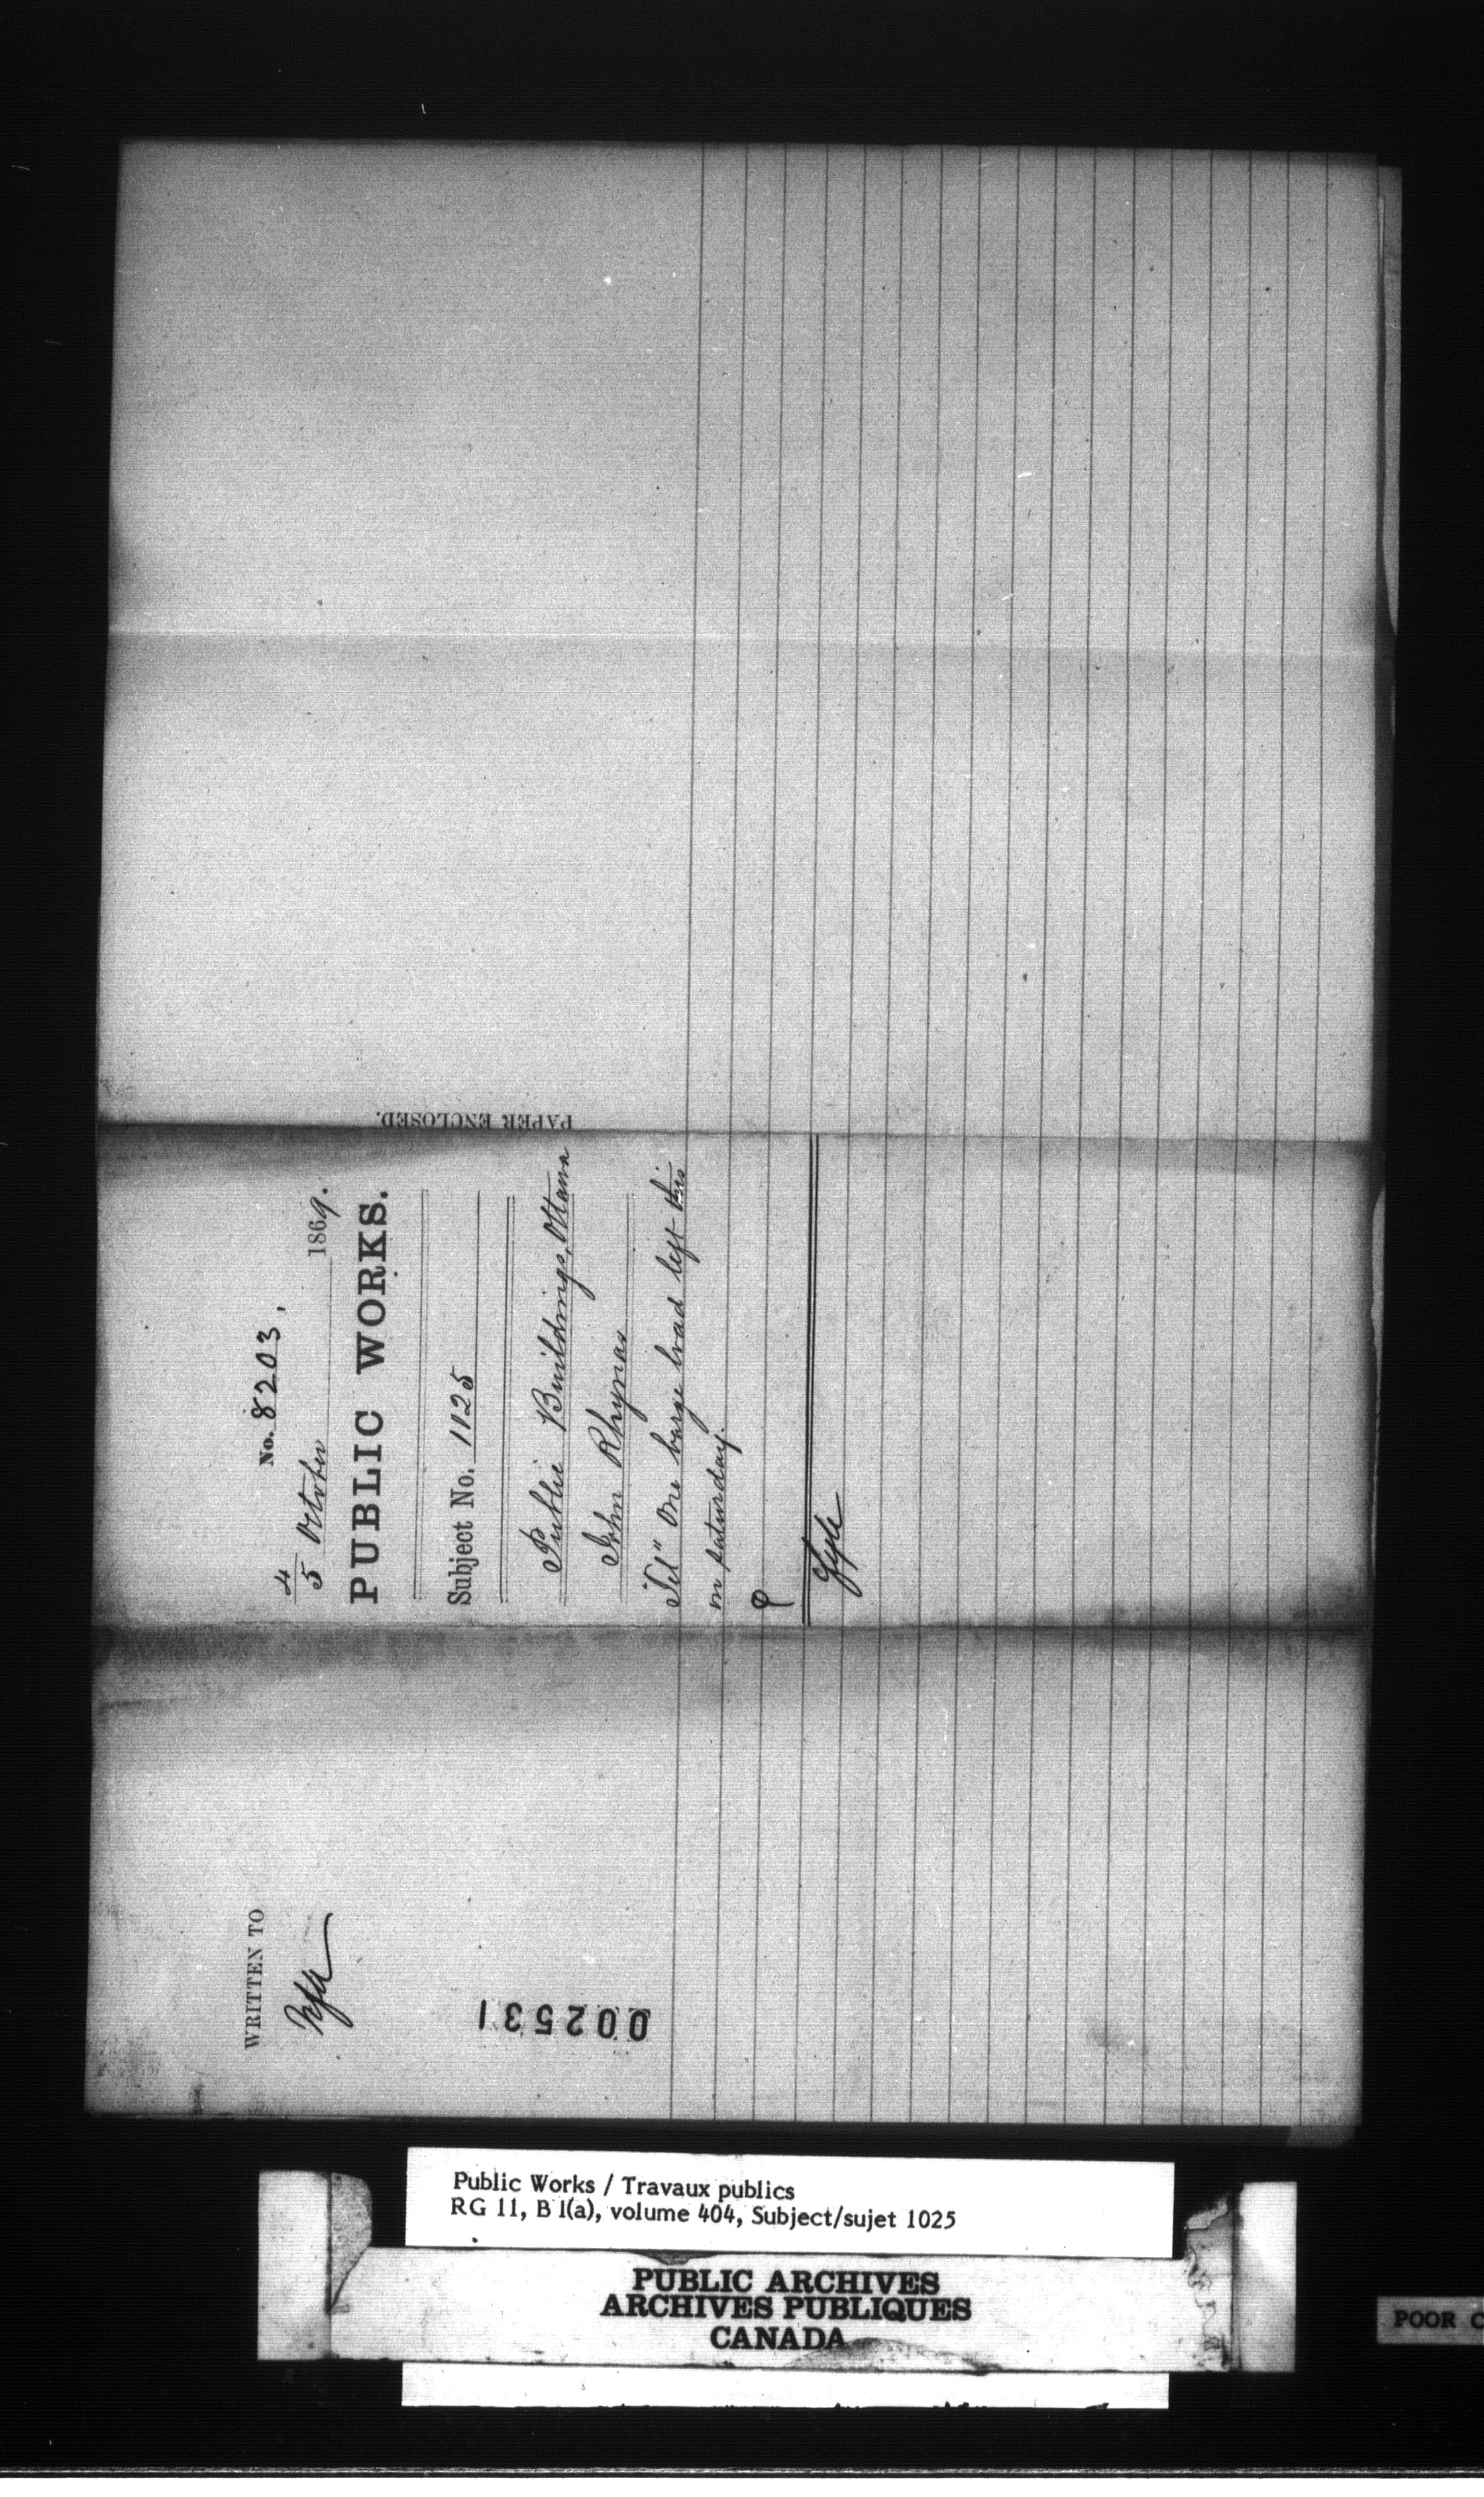 PAPER ENCLOSED.
No. 8203,
4/5 October 1869.
PUBLIC WORKS.
Subject No. 1125
Public Buildings, Ottawa
John Rhynas
"Tel" One barge load left this
on saturday.
Fyle
WRITTEN TO
002531
Public Works / Travaux publics
RG 11, B 1(a), volume 404, Subject/sujet 1025
PUBLIC ARCHIVES
ARCHIVES PUBLIQUES
CANADA
POOR C